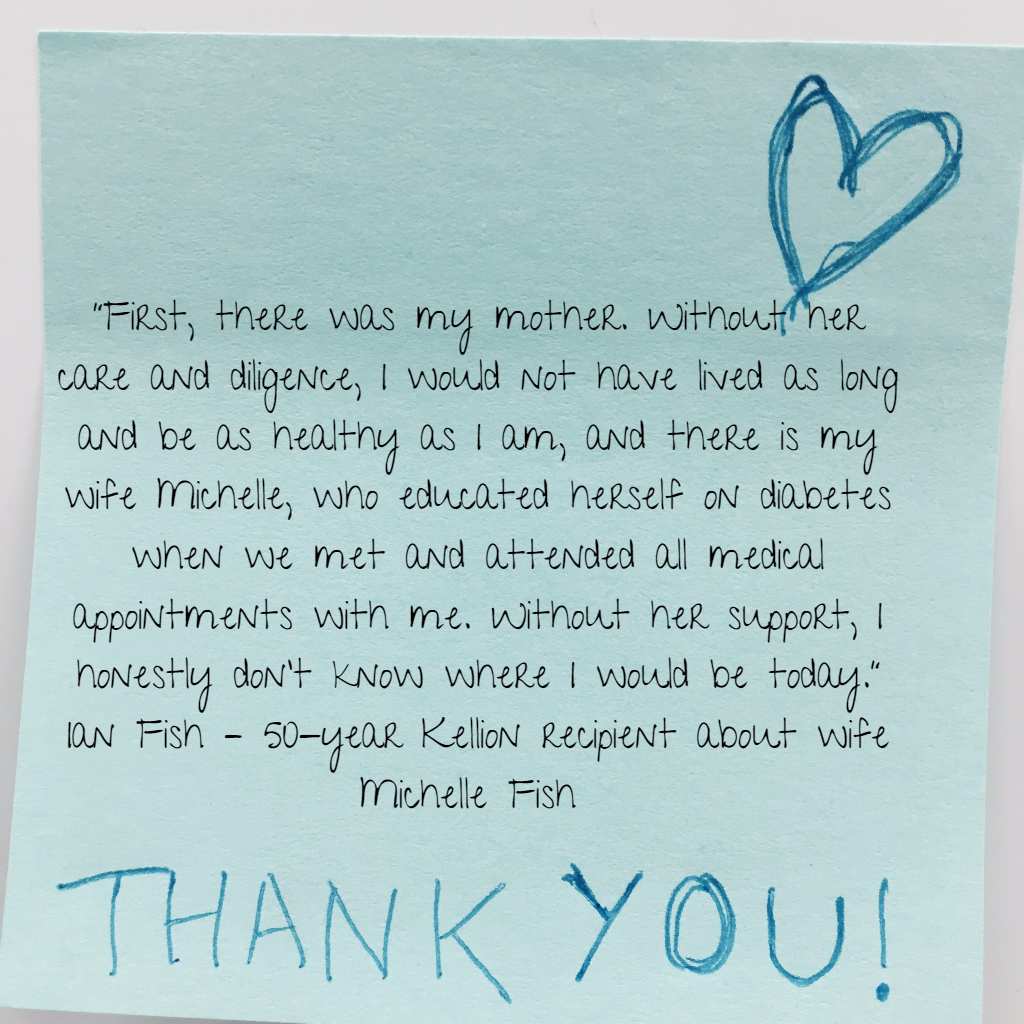 "First, there was my mother. Without her
care and diligence, I would not have lived as long
and be as healthy as I am, and there is my
wife Michelle, who educated herself on diabetes
when we met and attended all medical
appointments with me. Without her support, I
honestly don't know where I would be today."
Ian Fish - 50-year Kellion recipient about wife
Michelle Fish
THANK YOU!